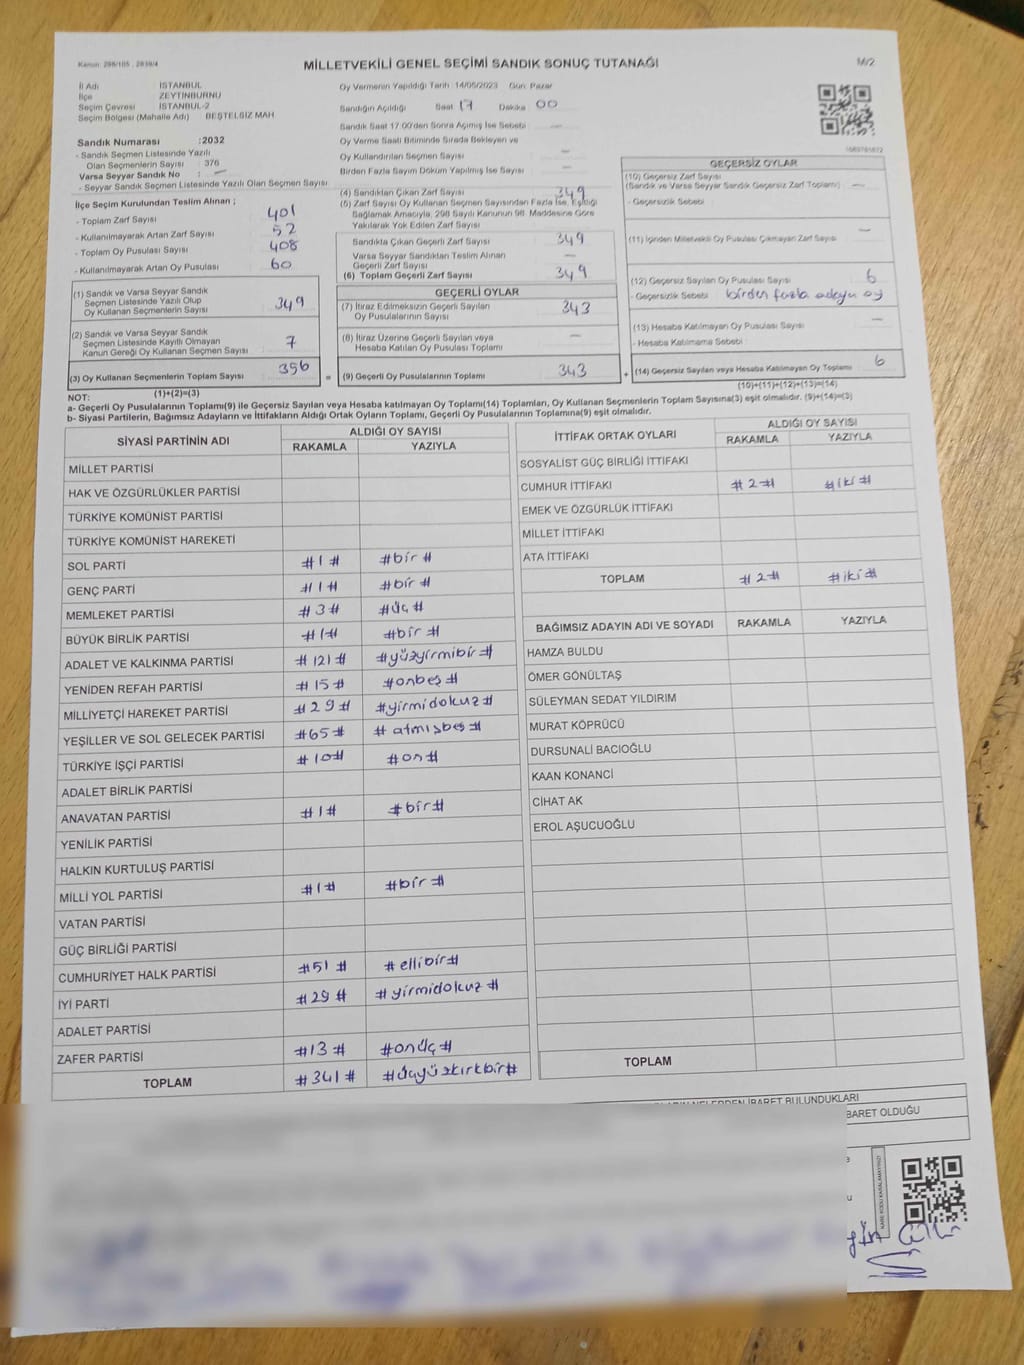 Kanun: 298/105 , 2839/4
MİLLETVEKİLİ GENEL SEÇİMİ SANDIK SONUÇ TUTANAĞI
M/2
İl Adı : İSTANBUL
İlçe : ZEYTİNBURNU
Seçim Çevresi : İSTANBUL-2
Seçim Bölgesi (Mahalle Adı) : BEŞTELSİZ MAH
Sandık Numarası :2032
- Sandık Seçmen Listesinde Yazılı
Olan Seçmenlerin Sayısı : 376
Varsa Seyyar Sandık No : —
- Seyyar Sandık Seçmen Listesinde Yazılı Olan Seçmen Sayısı:
İlçe Seçim Kurulundan Teslim Alınan ;
- Toplam Zarf Sayısı : 401
- Kullanılmayarak Artan Zarf Sayısı : 52
- Toplam Oy Pusulası Sayısı : 408
- Kullanılmayarak Artan Oy Pusulası : 60
(1) Sandık ve Varsa Seyyar Sandık
Seçmen Listesinde Yazılı Olup
Oy Kullanan Seçmenlerin Sayısı : 349
(2) Sandık ve Varsa Seyyar Sandık
Seçmen Listesinde Kayıtlı Olmayan
Kanun Gereği Oy Kullanan Seçmen Sayısı : 7
(3) Oy Kullanan Seçmenlerin Toplam Sayısı : 356
(1)+(2)=(3)
Oy Vermenin Yapıldığı Tarih : 14/05/2023 Gün: Pazar
Sandığın Açıldığı Saat 17 Dakika 00
Sandık Saat 17:00'den Sonra Açılmış İse Sebebi : —
Oy Verme Saati Bitiminde Sırada Bekleyen ve
Oy Kullandırılan Seçmen Sayısı : —
Birden Fazla Sayım Döküm Yapılmış İse Sayısı : —
(4) Sandıktan Çıkan Zarf Sayısı : 349
(5) Zarf Sayısı Oy Kullanan Seçmen Sayısından Fazla İse, Eşitliği
Sağlamak Amacıyla, 298 Sayılı Kanunun 98. Maddesine Göre
Yakılarak Yok Edilen Zarf Sayısı :
Sandıkta Çıkan Geçerli Zarf Sayısı : 349
Varsa Seyyar Sandıktan Teslim Alınan
Geçerli Zarf Sayısı : —
(6) Toplam Geçerli Zarf Sayısı : 349
GEÇERLİ OYLAR
(7) İtiraz Edilmeksizin Geçerli Sayılan
Oy Pusulalarının Sayısı : 343
(8) İtiraz Üzerine Geçerli Sayılan veya
Hesaba Katılan Oy Pusulası Toplamı : —
= (9) Geçerli Oy Pusulalarının Toplamı : 343
GEÇERSİZ OYLAR
(10) Geçersiz Zarf Sayısı
(Sandık ve Varsa Seyyar Sandık Geçersiz Zarf Toplamı) : —
- Geçersizlik Sebebi :
(11) İçinden Milletvekili Oy Pusulası Çıkmayan Zarf Sayısı : —
(12) Geçersiz Sayılan Oy Pusulası Sayısı : 6
- Geçersizlik Sebebi : birden fazla adaya oy
(13) Hesaba Katılmayan Oy Pusulası Sayısı : —
- Hesaba Katılmama Sebebi :
+ (14) Geçersiz Sayılan veya Hesaba Katılmayan Oy Toplamı : 6
(10)+(11)+(12)+(13)=(14)
NOT:
a- Geçerli Oy Pusulalarının Toplamı(9) ile Geçersiz Sayılan veya Hesaba katılmayan Oy Toplamı(14) Toplamları, Oy Kullanan Seçmenlerin Toplam Sayısına(3) eşit olmalıdır. (9)+(14)=(3)
b- Siyasi Partilerin, Bağımsız Adayların ve İttifakların Aldığı Ortak Oyların Toplamı, Geçerli Oy Pusulalarının Toplamına(9) eşit olmalıdır.
SİYASİ PARTİNİN ADI ALDIĞI OY SAYISI
RAKAMLA YAZIYLA
MİLLET PARTİSİ
HAK VE ÖZGÜRLÜKLER PARTİSİ
TÜRKİYE KOMÜNİST PARTİSİ
TÜRKİYE KOMÜNİST HAREKETİ
SOL PARTİ #1# #bir#
GENÇ PARTİ #1# #bir#
MEMLEKET PARTİSİ #3# #üç#
BÜYÜK BİRLİK PARTİSİ #1# #bir#
ADALET VE KALKINMA PARTİSİ #121# #yüzyirmibir#
YENİDEN REFAH PARTİSİ #15# #onbeş#
MİLLİYETÇİ HAREKET PARTİSİ #29# #yirmidokuz#
YEŞİLLER VE SOL GELECEK PARTİSİ #65# #atmışbeş#
TÜRKİYE İŞÇİ PARTİSİ #10# #on#
ADALET BİRLİK PARTİSİ
ANAVATAN PARTİSİ #1# #bir#
YENİLİK PARTİSİ
HALKIN KURTULUŞ PARTİSİ
MİLLİ YOL PARTİSİ #1# #bir#
VATAN PARTİSİ
GÜÇ BİRLİĞİ PARTİSİ
CUMHURİYET HALK PARTİSİ #51# #ellibir#
İYİ PARTİ #29# #yirmidokuz#
ADALET PARTİSİ
ZAFER PARTİSİ #13# #onüç#
TOPLAM #341# #üçyüzkırkbir#
İTTİFAK ORTAK OYLARI ALDIĞI OY SAYISI
RAKAMLA YAZIYLA
SOSYALİST GÜÇ BİRLİĞİ İTTİFAKI
CUMHUR İTTİFAKI #2# #iki#
EMEK VE ÖZGÜRLÜK İTTİFAKI
MİLLET İTTİFAKI
ATA İTTİFAKI
TOPLAM #2# #iki#
BAĞIMSIZ ADAYIN ADI VE SOYADI RAKAMLA YAZIYLA
HAMZA BULDU
ÖMER GÖNÜLTAŞ
SÜLEYMAN SEDAT YILDIRIM
MURAT KÖPRÜCÜ
DURSUNALİ BACIOĞLU
KAAN KONANCİ
CİHAT AK
EROL AŞUCUOĞLU
TOPLAM
NELERDEN İBARET BULUNDUKLARI
BARET OLDUĞU